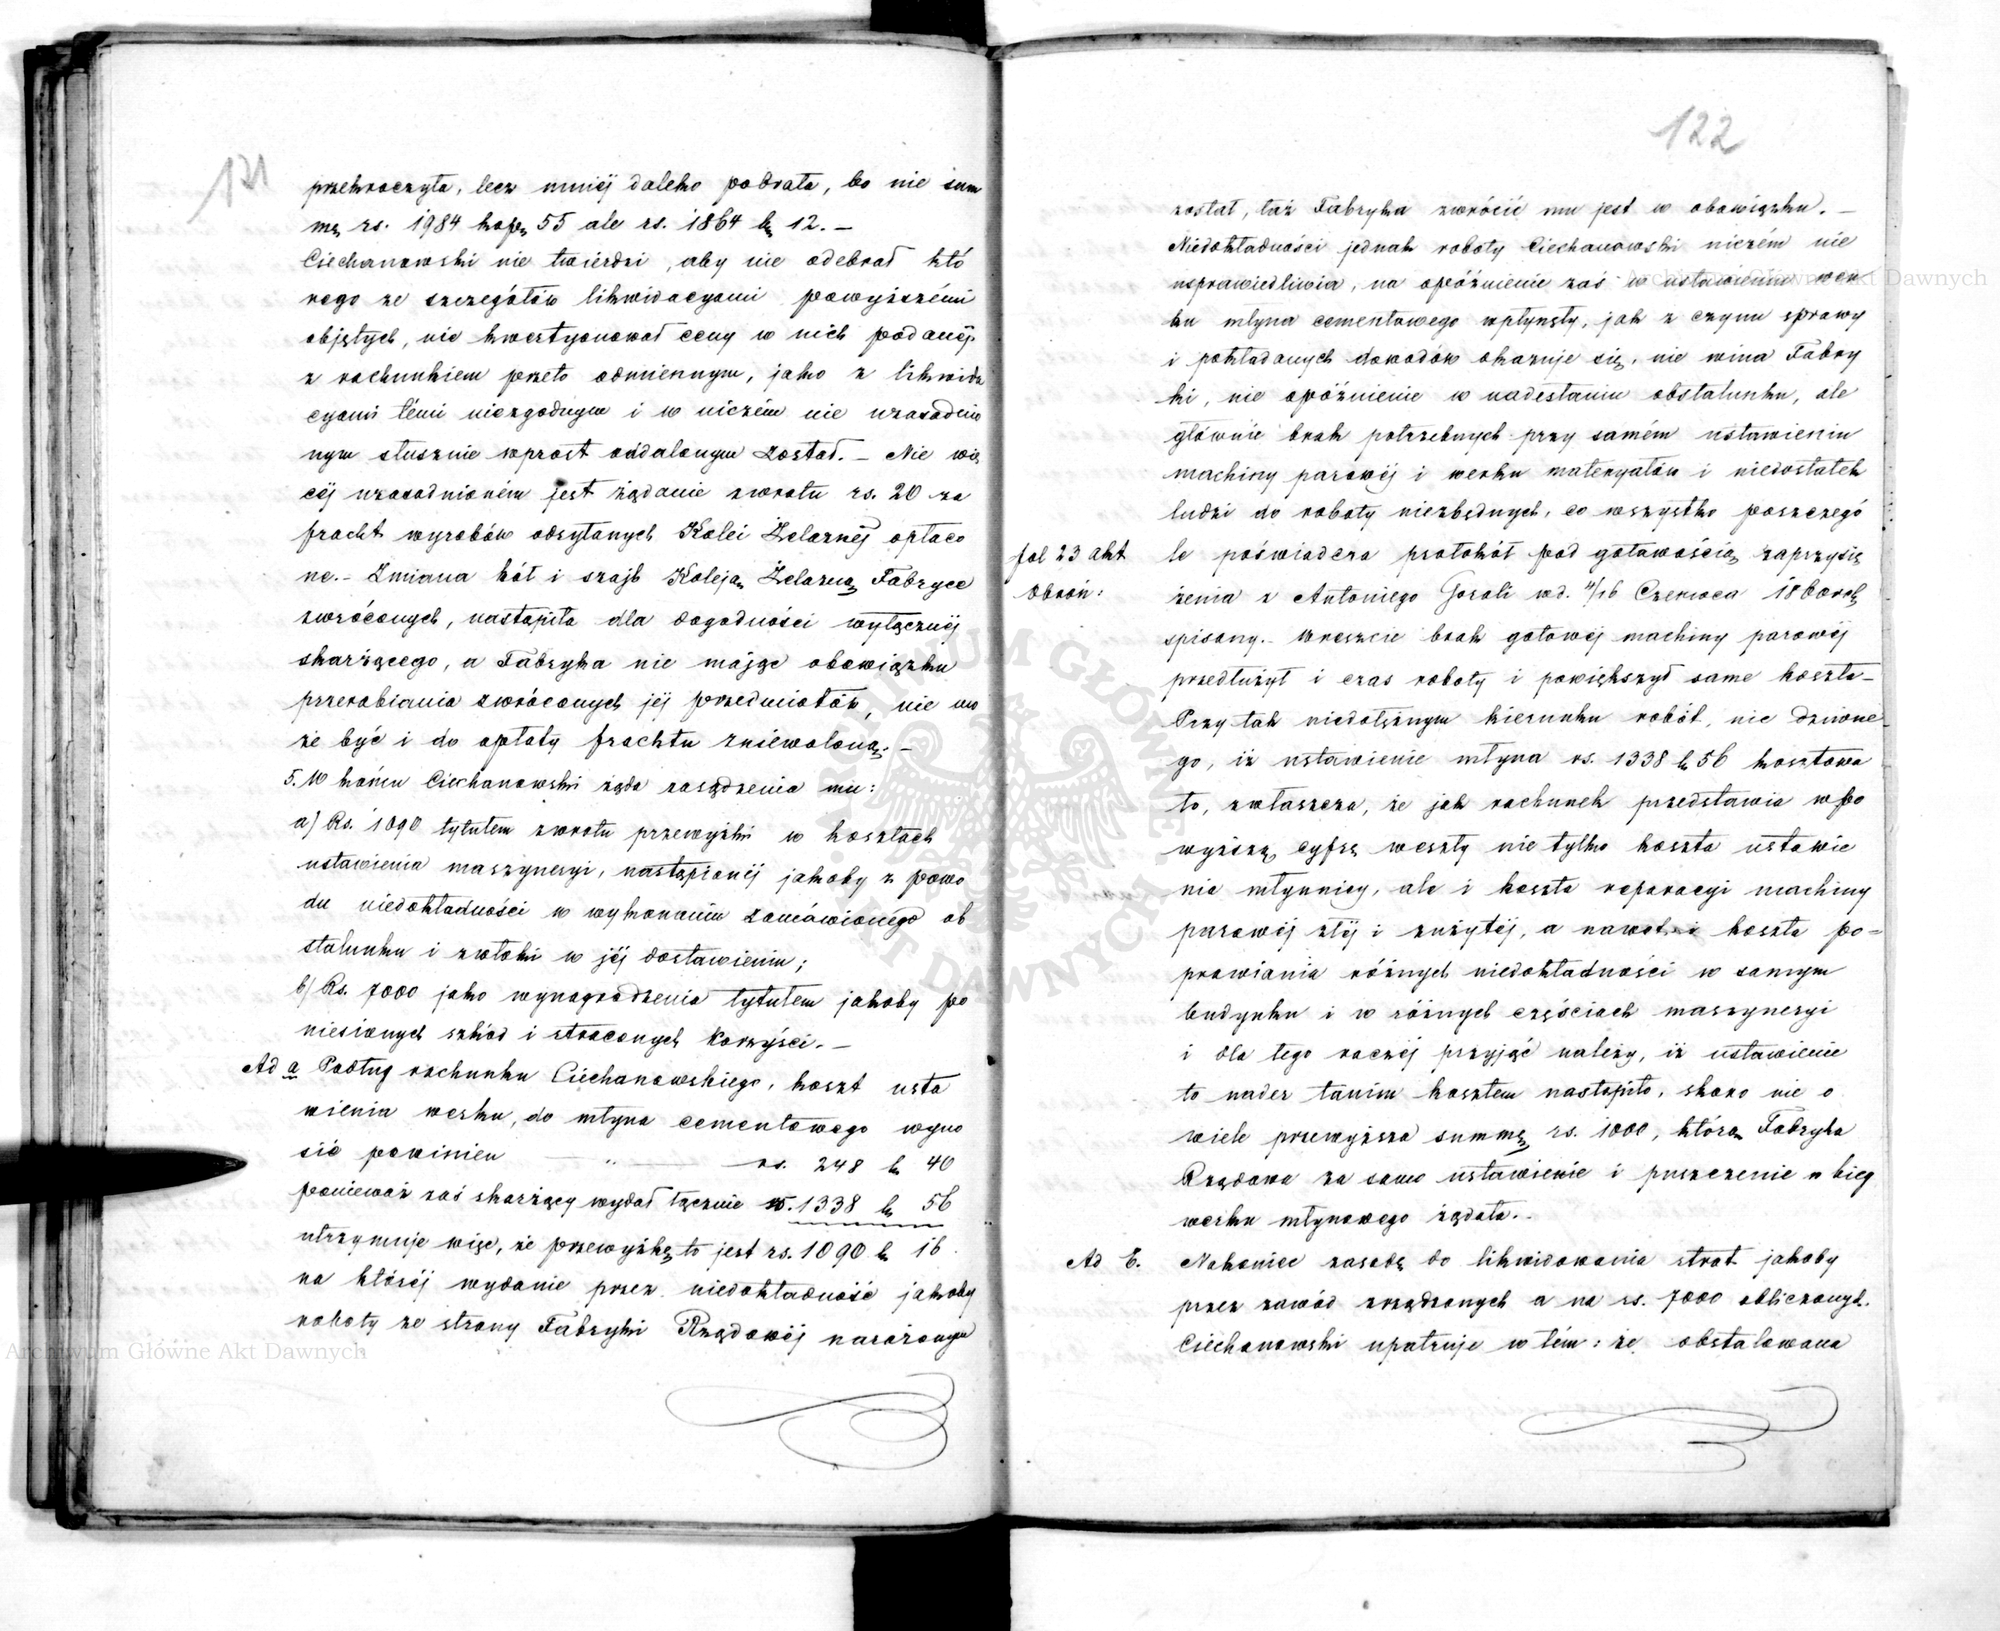 121
przekroczyła, lecz mniéj daleko pobrała, bo nie sum
mę rs. 1984 kope 55 ale rs. 1864 k. 12. —
Ciechanowski nie twierdzi, aby nie odebrał któ
rego ze szczegółów likwidacyami powyższémi
objętych, nie kwestyonował ceny w nich podanéj.
z rachunkiem przeto odmiennym, jako z likwida
cyami témi niezgodnym i w niczém nie uzasadnio
nym słusznie wprost oddalonym został. — Nie wię
céj uzasadnioném jest żądanie zwrotu rs. 20 za
fracht wyrobów odsyłanych Kolei Żelaznéj opłaco
ne. — Zmiana kół i szajb Koleją Żelazną Fabryce
zwróconych, nastąpiła dla dogodności wyłącznéj
skarżącego, a Fabryka nie mając obowiązku
przerabiania zwróconych jéj przedmiotów, nie mo
że być i do opłaty frachtu zniewoloną. —
5. W końcu Ciechanowski żąda zasądzenia mu:
a) Rs. 1090 tytułem zwrotu przewyżki w kosztach
ustawienia maszyneryi, nastąpionéj jakoby z powo
du niedokładności w wykonaniu zamówionego ob
stalunku i zwłoki w jéj dostawieniu;
b) Rs. 7000 jako wynagrodzenia tytułem jakoby po
niesionych szkód i straconych korzyści. —
Ad a Podług rachunku Ciechanowskiego, koszt usta
wienia werku, do młyna cementowego wyno
sić powinien — " — rs. 248 k. 40
ponieważ zaś skarżący wydał łącznie rs. 1338 k. 56
utrzymuje więc, że przewyżkę to jest rs. 1090 k. 16.
na któréj wydanie przez niedokładność jakoby
roboty ze strony Fabryki Rządowéj narażonym
122
został, taż Fabryka zwrócić mu jest w obowiązku. —
Niedokładności jednak roboty Ciechanowski niczém nie
usprawiedliwia, na opóźnienie zaś w ustawieniu wer
ku młyna cementowego wpłynęły, jak z czynu sprawy
i pokładanych dowodów okazuje się, nie wina Fabry
ki, nie opóźnienie w nadesłaniu obstalunku, ale
głównie brak potrzebnych przy samém ustawieniu
machiny parowéj i werku materyałów i niedostatek
ludzi do roboty niezbędnych, co wszystko poszczegó
fol 23 akt
obroń:
le poświadcza protokół pod gotowością zaprzysię
żenia z Antoniego Gorali w d. 4/16 Czerwca 1860 rok
spisany. — Wreszcie brak gotowéj machiny parowéj
przedłużył i czas roboty i powiększył same koszta —
Przy tak niedołężnym kierunku robót, nic dziwne
go, iż ustawienie młyna rs. 1338 k. 56 kosztowa
ło, zwłaszcza, że jak rachunek przedstawia w po
wyższą cyfrę weszły nie tylko koszta ustawie
nia młynnicy, ale i koszta reparacyi machiny
parowéj złéj i zużytéj, a nawet i koszta po=
prawiania różnych niedokładności w samym
budynku i w różnych częściach maszyneryi
i dla tego raczéj przyjąć należy, iż ustawienie
to nader tanim kosztem nastąpiło, skoro nie o
wiele przewyższa summę rs. 1000, którą Fabryka
Rządowa za samo ustawienie i puszczenie w bieg
werku młynowego żądała. —
Ad b. Nakoniec zasadę do likwidowania strat jakoby
przez zawód zrządzonych a na rs. 7000 obliczonych.
Ciechanowski upatruje w tém: że obstalowana
Archiwum Główne Akt Dawnych
Archiwum Główne Akt Dawnych
ARCHIWUM GŁÓWNE AKT DAWNYCH